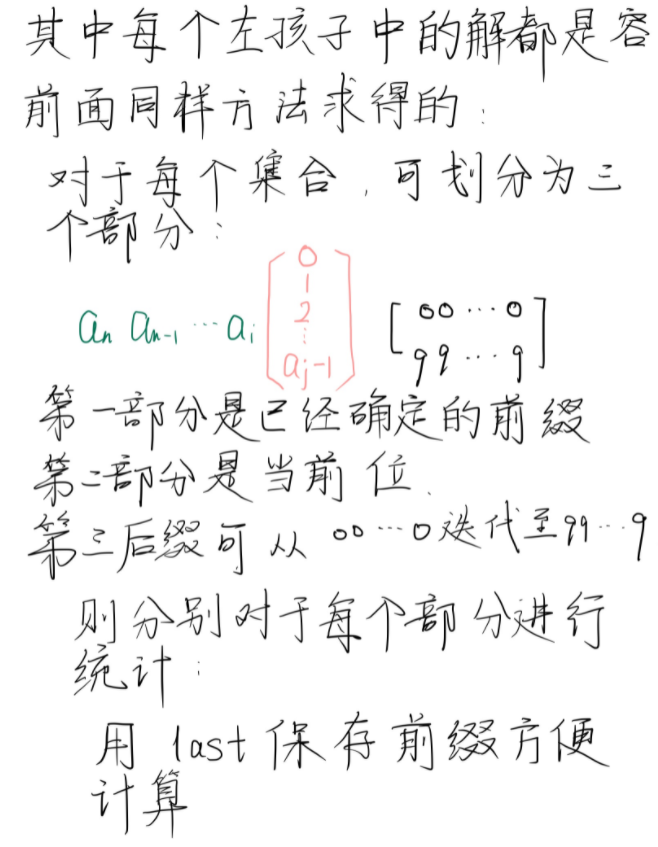 其中每个左孩子中的解都是容
前面同样方法求得的：
对于每个集合，可划分为三
个部分：
aₙ aₙ₋₁ … aᵢ [0 1 2 ⋮ aⱼ-1] [00…0 99…9]
第一部分是已经确定的前缀
第二部分是当前位.
第三后缀可从 00…0迭代至99…9
则分别对于每个部分进行
统计：
用 last 保存前缀方便
计算